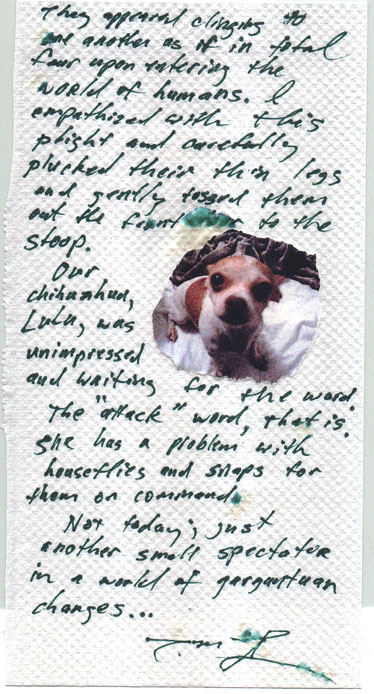 They appeared clinging to
one another as if in total
fear upon entering the
world of humans. I
empathized with this
plight and carefully
plucked their thin legs
and gently tossed them
out the front door to the
stoop.
Our
chihuahua,
Lulu, was
unimpressed
and waiting for the word.
The "attack" word, that is.
She has a problem with
houseflies and snaps for
them on command.
Not today; just
another small spectator
in a world of gargantuan
changes...